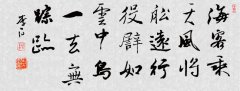 海客乘
天風將
船遠行
役譬如
雲中鳥
一去無
踪跡